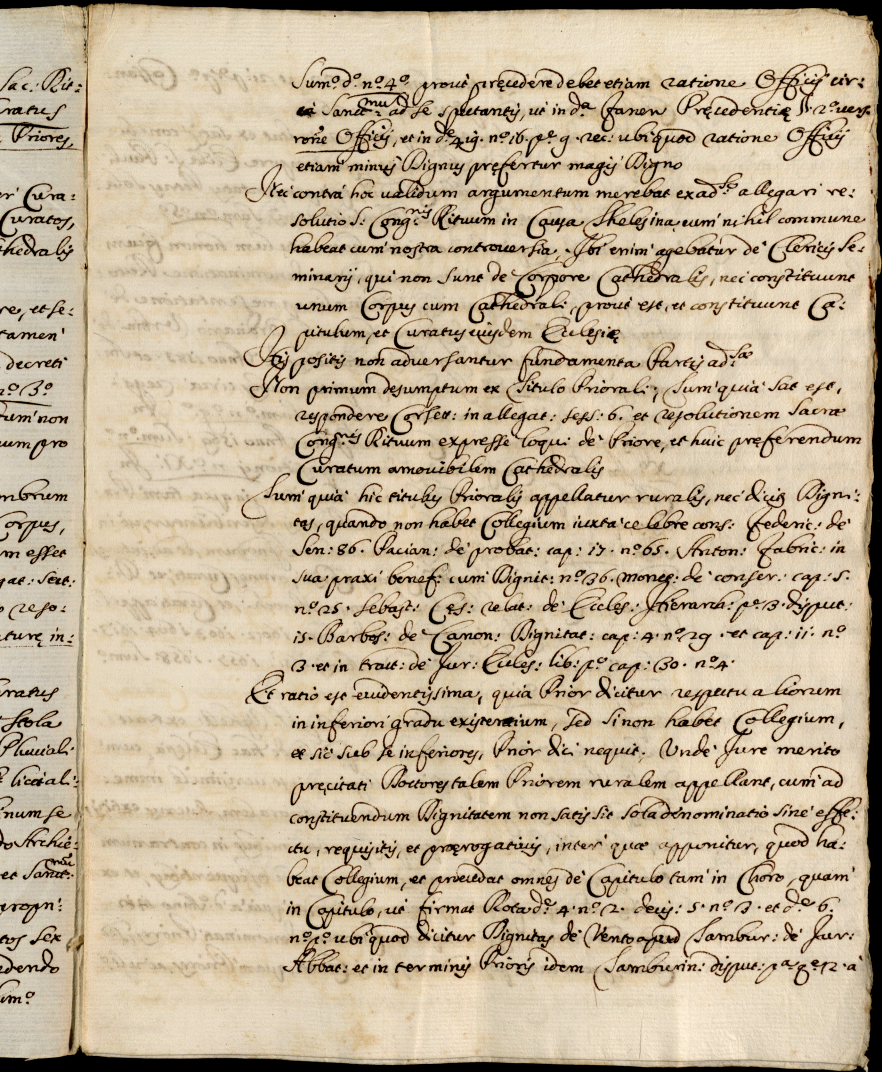 Sac: Rit:
ratus
Priores,
Cura:
Curatos,
thedralis
re, et se:
tamen
decreti
nº 3º
tum non
um pro
mbrum
Corpus,
m esset
reso:
turę in:
uratus
Stola
Pluviali
num se
do Archie:
et Sanct:
propri:
tos sex
edendo
um:º
Sum:º d:º nº 4º prout pręcedere debet etiam ratione Officij cir:
ca Sanct:mu ad se spectantis, ut in d:ª Januen Pręcedentię §. 2º vers.
Officij, et in d:ª 4. q. nº 16. pº 9. rec: ubi quod ratione Officij
etiam minus Dignus pręfertur magis Digno
Nec contra hoc validum argumentum merebat ex ads:º allegari re:
solutio S: Cong:nis Rituum in Causa Thelesina cum nihil commune
habeat cum nostra controversia, Ibi enim agebatur de Clericis Se:
minarij, qui non sunt de Corpore Cathedralis, nec constituunt
unum Corpus cum Cathedrali, prout est, et constituunt Ca:
pitulum, et Curatus eiusdem Ecclesię
His positis non adversantur fundamenta Partis ad:sæ
Non primum desumptum ex Titulo Priorali, Tum quia sat est,
respondere Corset: in allegat: sess: 6. et resolutionem Sacræ
Cong:nis Rituum expresse loqui de Priore, et huic pręferendum
Curatum amovibilem Cathedralis
Tum quia hic titulus Prioralis appellatur ruralis, nec dicit Digni:
tas, quando non habet Collegium iuxta celebre cons: Federic: de
Sen: 86. Pacian: de probat: cap: 17. nº 65. Anton: Fabric: in
sua praxi benef: cum Dignit: nº 36. Mones: de conser: cap: 5.
nº 25. Sebast: Cęs: relat: de Eccles: Hierarch: pº 3. disput:
15. Barbos: de Canon: Dignitat: cap: 4. nº 29. et cap: 11. nº
3. et in tract: de Jur: Eccles: lib: pº cap: 30. nº 4.
Et ratio est evidentissima, quia Prior dicitur respectu aliorum
in inferiori gradu existentium, sed si non habet Collegium,
et sic sub se inferiores, Prior dici nequit, Unde Jure merito
pręcitati Doctores talem Priorem ruralem appellant, cum ad
constituendum Dignitatem non satis sit sola denominatio sine effe:
ctu, requisitis, et pręrogativis, inter quæ apponitur, quod ha:
beat Collegium, et pręcedat omnes de Capitulo tam in Choro, quam
in Capitulo, ut firmat Rota d:ª 4. nº 2. decis: 5. nº 3. et d:ª 6.
nº pº ubi quod dicitur Dignitas de Vento apud Tambur: de Jur:
Abbat: et in terminis Prioris idem Tamburin: disput: pª q:º 12. a